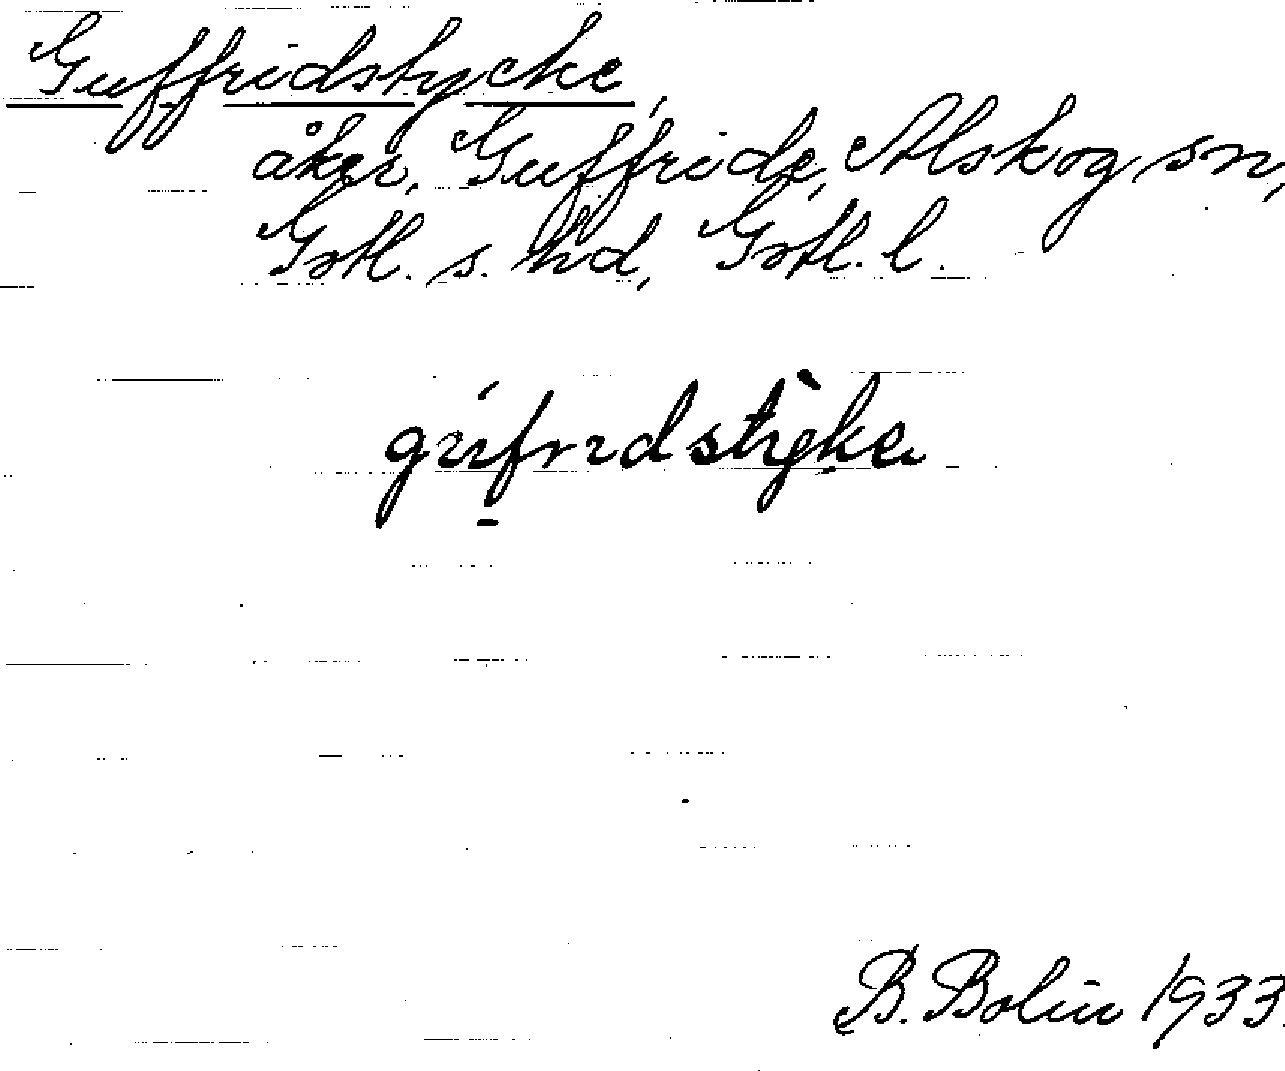 Guffridstycke,
åker, Guffride, Alskog sn,
Gotl. s. hd, Gotl. l.
gúfrıdstỳkə
B. Bolin 1933.